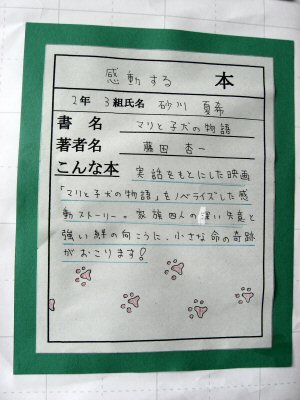 感動する 本
2年 3組氏名 砂川 夏希
書名 マリと子犬の物語
著者名 藤田 杏一
こんな本 実話をもとにした映画
「マリと子犬の物語」をノベライズした感
動ストーリー。家族四人の深い失意と
強い絆の向こうに、小さな命の奇跡
がおこります!